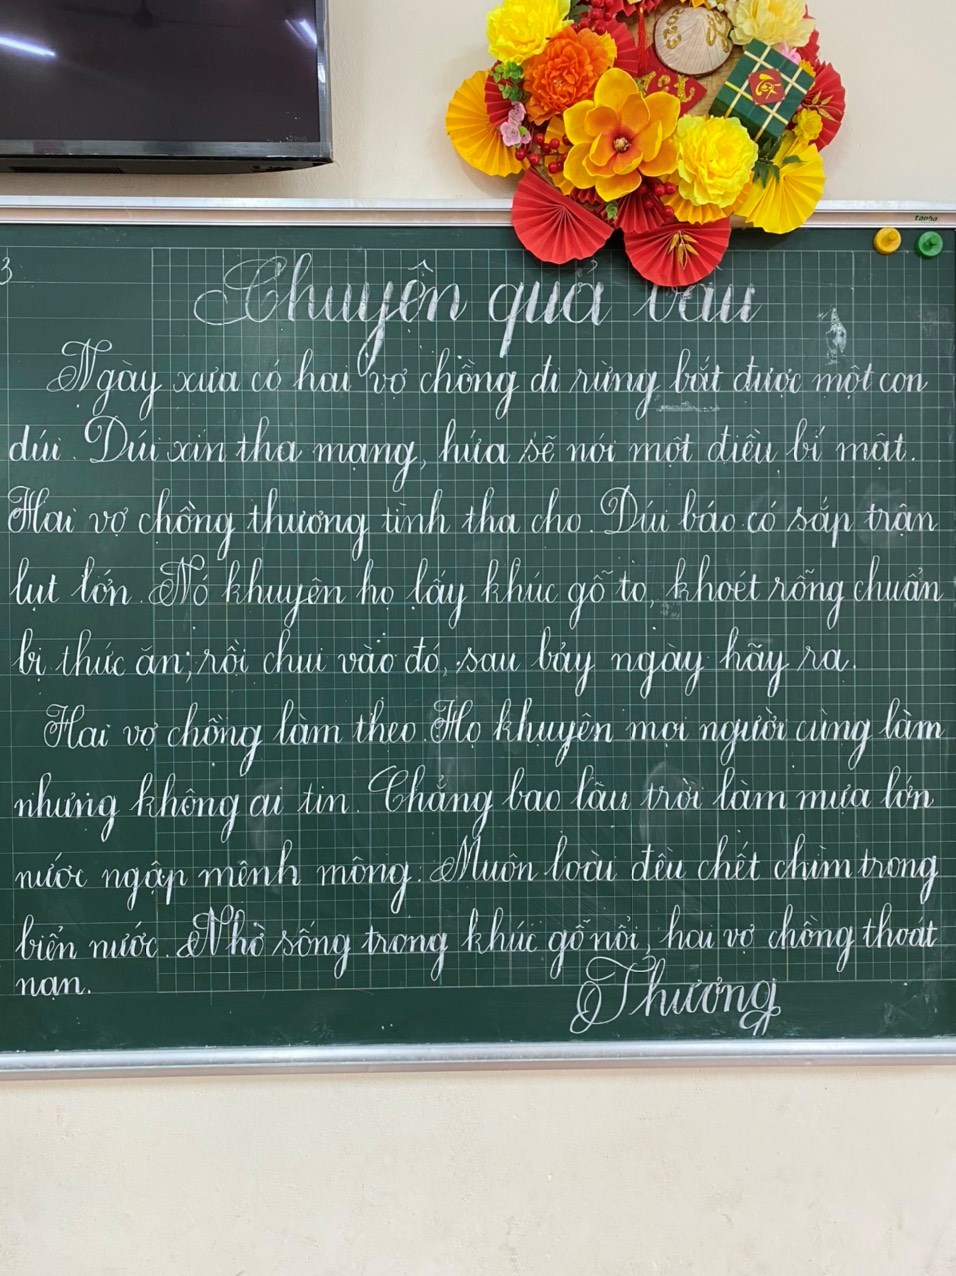 tanha
3
Chuyện quả bầu
Ngày xưa có hai vợ chồng đi rừng bắt được một con
dúi. Dúi xin tha mạng, hứa sẽ nói một điều bí mật.
Hai vợ chồng thương tình tha cho. Dúi báo có sắp trận
lụt lớn. Nó khuyên họ lấy khúc gỗ to, khoét rỗng chuẩn
bị thức ăn, rồi chui vào đó, sau bảy ngày hãy ra.
Hai vợ chồng làm theo. Họ khuyên mọi người cùng làm
nhưng không ai tin. Chẳng bao lâu trời làm mưa lớn
nước ngập mênh mông. Muôn loài đều chết chìm trong
biển nước. Nhờ sống trong khúc gỗ nổi, hai vợ chồng thoát
nạn.
Thương